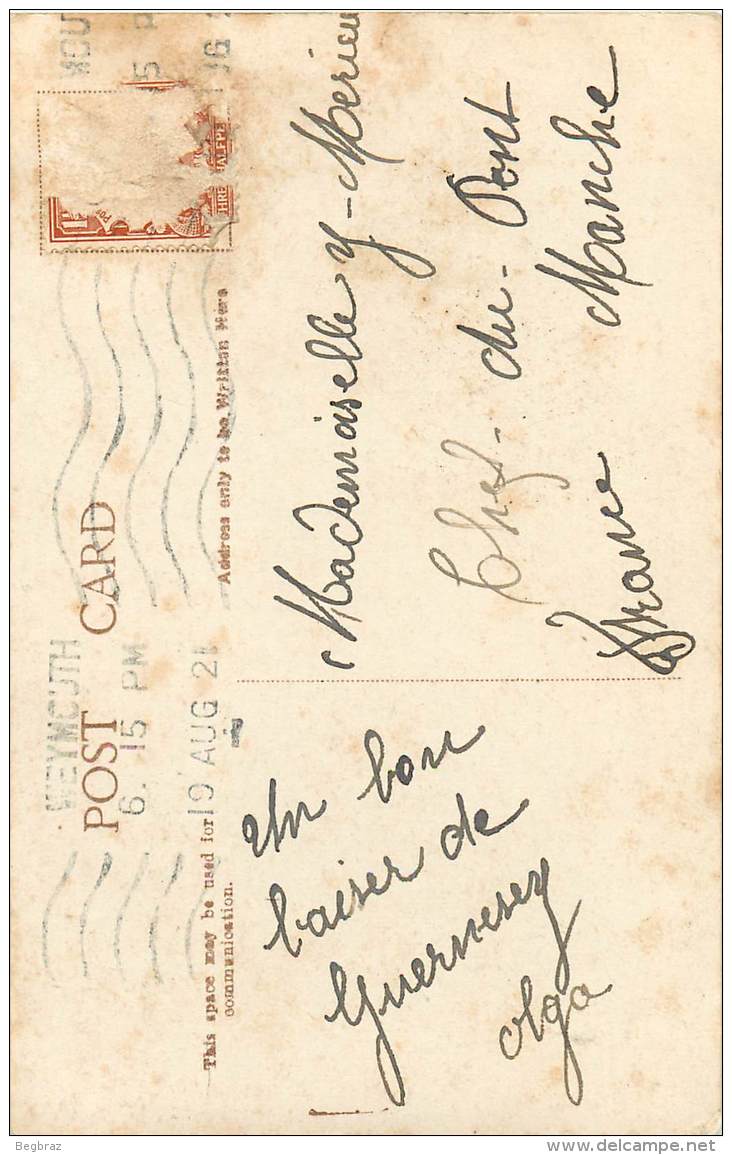 WEYMOUTH
6. 15 PM
19 AUG 21
POST CARD
This space may be used for
communication.
Address only to be Written Here
HALFPE
Un bon
baiser de
Guernesey
Olga
Mademoiselle Y- Merieu
Chef- du- Pont
Manche
France
Begbraz
www.delcampe.net